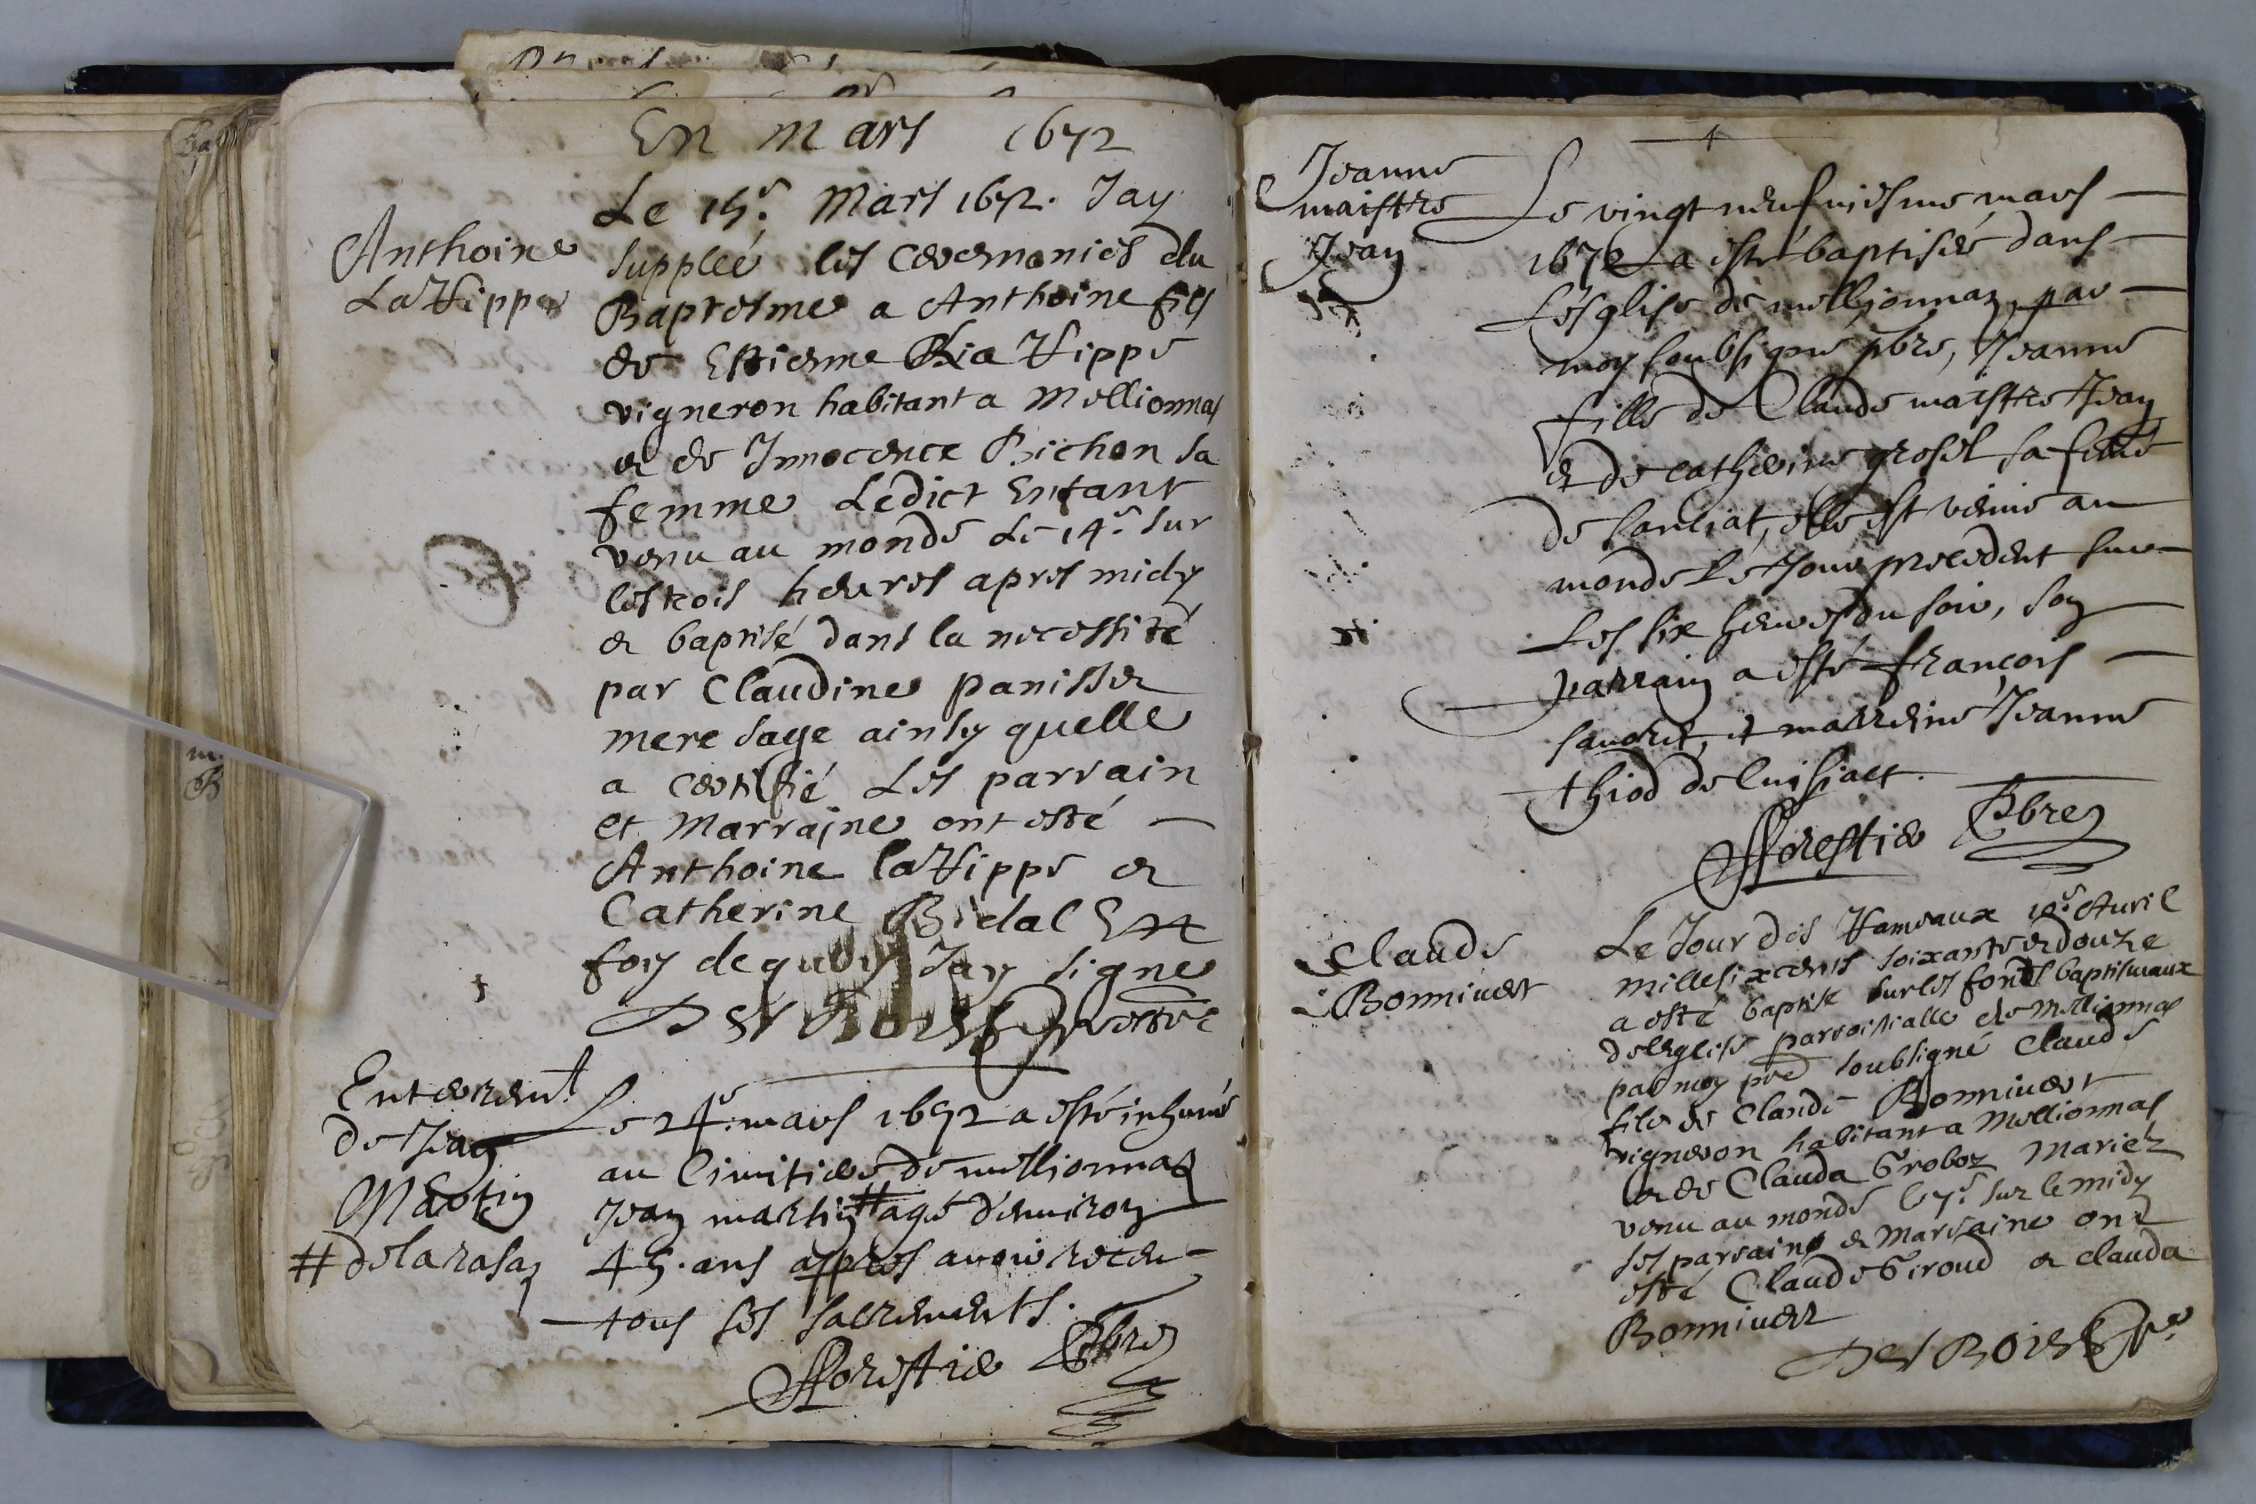 En Mars 1672
Anthoine
La Hippe
Le 15e. Mars 1672. Jay
supplée les ceremonies du
Baptesme a Anthoine fils
de Estienne La Hippe
vigneron habitant a Mellionnas
& de Innocence Bichon sa
femme Ledict Enfant
venu au monde Le 14e. sur
les trois heures apres midy
& baptisé dans la necessité
par Claudine panisset
mere sage ainsy quelle
a certifié Les parrain
et Marraine ont esté
Anthoine la Hippe &
Catherine Bidal En
foy de quoy Jay signe
DesBois prestre
Enterremt
de Jean
Martin
# de la rasaz
Le 24e. mars 1672 a esté inhumé
au Cimitiere de mellionnaz
Jean martin # agé d'environ
45. ans apres avoir receu
tous ses sacrements.
fforestier Pbre
Jeanne
maistre
Jean
Le vingt neufuiesme mars
1672 a esté baptisée dans
L'esglise de mellionnaz, par
moy soubsigné pbre, Jeanne
fille de Claude maistre Jean
& de catherine grosel sa feme
de sanciat, elle est venue au
monde le Jour precedent sur
Les six heures du soir, son
parrain a esté françois
sauoret, et marreine Jeanne
thiod de luisiact.
fforestier Pbre
Claude
Bonniuert
Le Jour des Rameaux 10e. Auril
mille six cents soixante & douze
a esté baptisé sur les fonds baptismaux
de leglise parroissialle de Mellionnas
par moy pre soubsigné Claude
fils de Claude Bonniuert
vigneron habitant a Mellionnas
& de Clauda Groboz Mariéz
venu au monde le 7e. sur le midy
ses parrains & Marraine ont
esté Claude Giroud & clauda
Bonniuert
DesBois pre